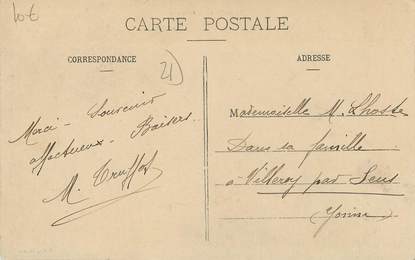 10 €
CARTE POSTALE
CORRESPONDANCE
ADRESSE
21)
Merci - Souvenir
affectueux - Baisers
M. Truffot
Mademoiselle M. Lhoste
Dans sa famille
à Villeroy par Sens
(Yonne)